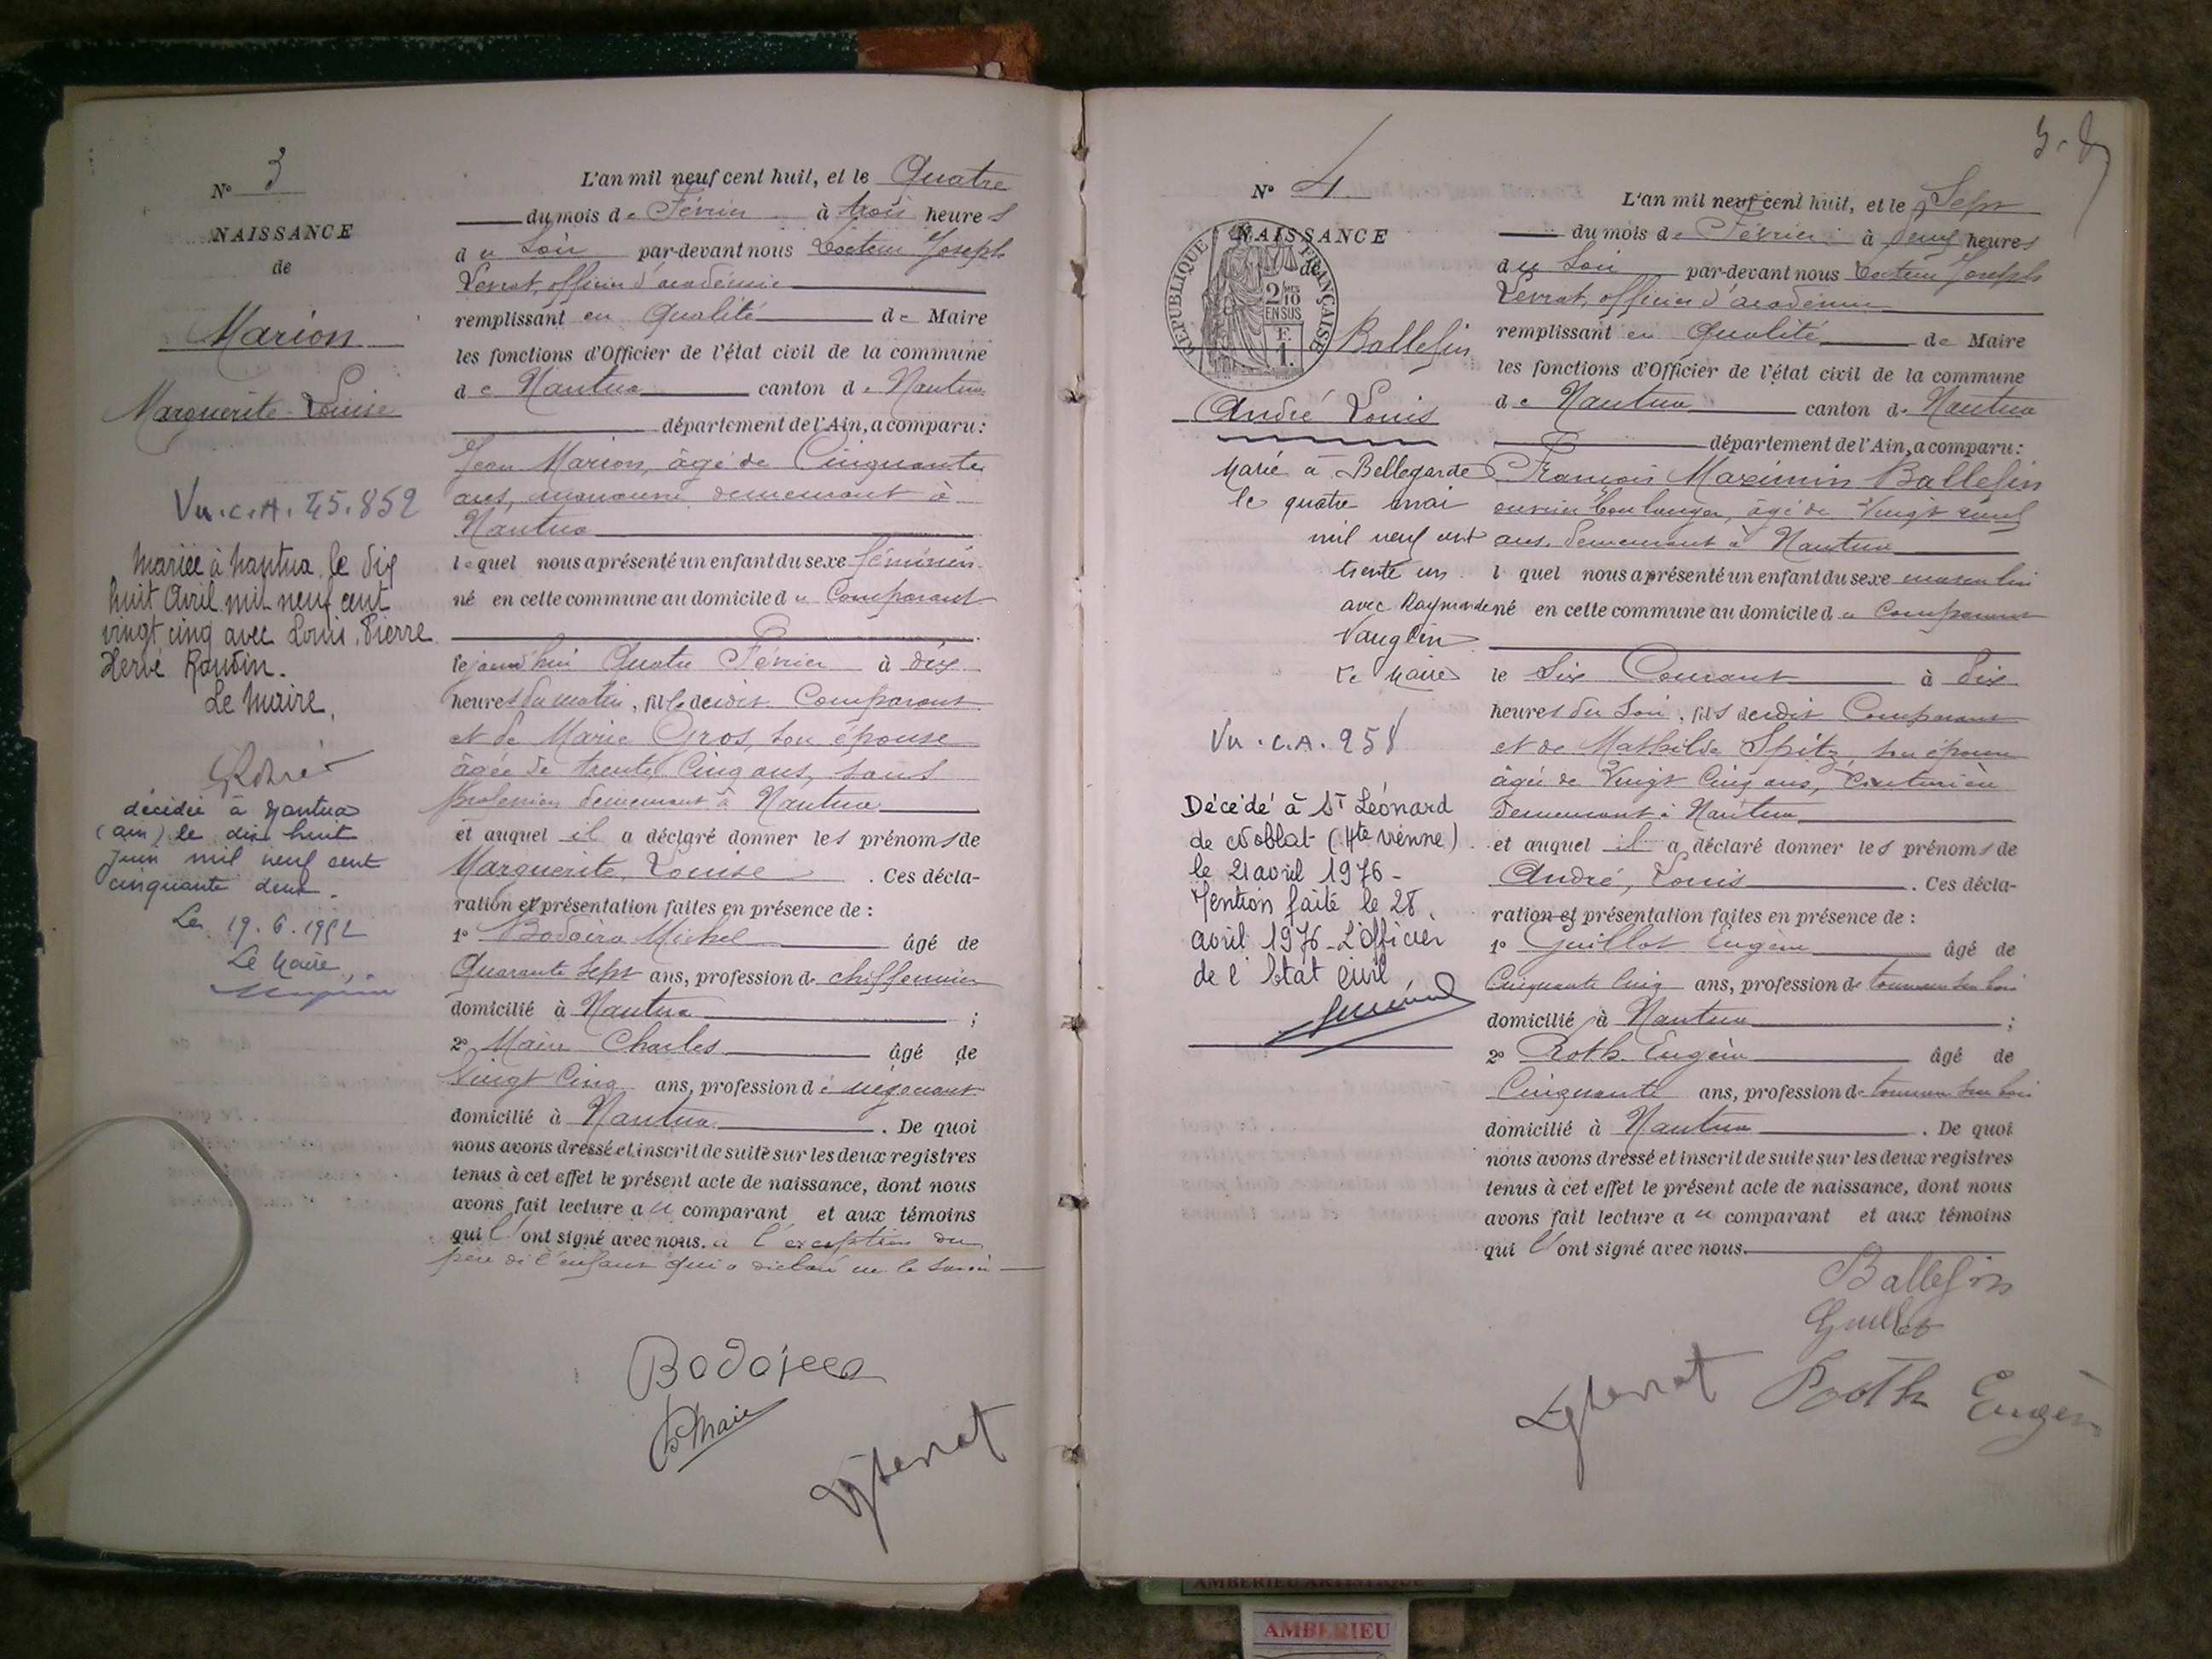 N° 3
NAISSANCE
de
Marion
Marguerite Louise
Vu.C.A. 45.852
Mariée à Nantua le dix
huit Avril mil neuf cent
vingt cinq avec Louis, Pierre
Hervé
Le Maire,
décédée à Nantua
(ain) le dix huit
Juin mil neuf cent
cinquante deux.
Le 19.6.1952
Le Maire,
L'an mil neuf cent huit, et le Quatre
du mois de Février à trois heures
du Soir par-devant nous Docteur Joseph
Levrat, officier d'académie
remplissant en qualité de Maire
les fonctions d'Officier de l'état civil de la commune
de Nantua canton de Nantua
département de l'Ain, a comparu:
Jean Marion, âgé de Cinquante
ans, demeurant à
Nantua
lequel nous a présenté un enfant du sexe féminin
né en cette commune au domicile du Comparant
lejourd'hui Quatre Février à dix
heures du matin, fille dudit Comparant
et de Marie Gros, son épouse
âgée de trente cinq ans, sans
profession demeurant à Nantua
et auquel il a déclaré donner les prénoms de
Marguerite Louise . Ces décla-
ration et présentation faites en présence de :
1° Michel âgé de
Quarante sept ans, profession de chiffonnier
domicilié à Nantua ;
2° Maire Charles âgé de
Vingt cinq ans, profession de négociant
domicilié à Nantua . De quoi
nous avons dressé et inscrit de suite sur les deux registres
tenus à cet effet le présent acte de naissance, dont nous
avons fait lecture au comparant et aux témoins
qui l'ont signé avec nous. à l'exception du
père de l'enfant qui a déclaré ne le savoir
C. Maire
Levrat
N° 4
NAISSANCE
de
RÉPUBLIQUE FRANÇAISE
2 MES
10
EN SUS
F.
1.
Ballefin
André Louis
Marié à Bellegarde
le quatre mai
mil neuf cent
trente un
avec Raymonde
Vauglin
Le Maire
Vu.C.A. 958
Décédé à St Léonard
de Noblat (Hte Vienne)
le 21 avril 1976 -
Mention faite le 28
avril 1976 - L'Officier
de l'Etat Civil
L'an mil neuf cent huit, et le Sept
du mois de Février à heures
du Soir par-devant nous Docteur Joseph
Levrat, officier d'académie
remplissant en qualité de Maire
les fonctions d'Officier de l'état civil de la commune
de Nantua canton de Nantua
département de l'Ain, a comparu:
François Maximin Ballefin
ouvrier boulanger, âgé de Vingt
ans, demeurant à Nantua
lequel nous a présenté un enfant du sexe masculin
né en cette commune au domicile du Comparant
le Six Courant à dix
heures du Soir, fils dudit Comparant
et de Mathilde Spitz, son épouse
âgée de Vingt cinq ans, Couturière
demeurant à Nantua
et auquel il a déclaré donner les prénoms de
André, Louis . Ces décla-
ration et présentation faites en présence de :
1° Guillot Eugène âgé de
Cinquante cinq ans, profession de tourneur sur bois
domicilié à Nantua ;
2° Roth Eugène âgé de
Cinquante ans, profession de tourneur sur bois
domicilié à Nantua . De quoi
nous avons dressé et inscrit de suite sur les deux registres
tenus à cet effet le présent acte de naissance, dont nous
avons fait lecture au comparant et aux témoins
qui l'ont signé avec nous.
Ballefin
Guillot
Levrat Roth Eugène
AMBERIEU ARTISTIQUE
AMBERIEU